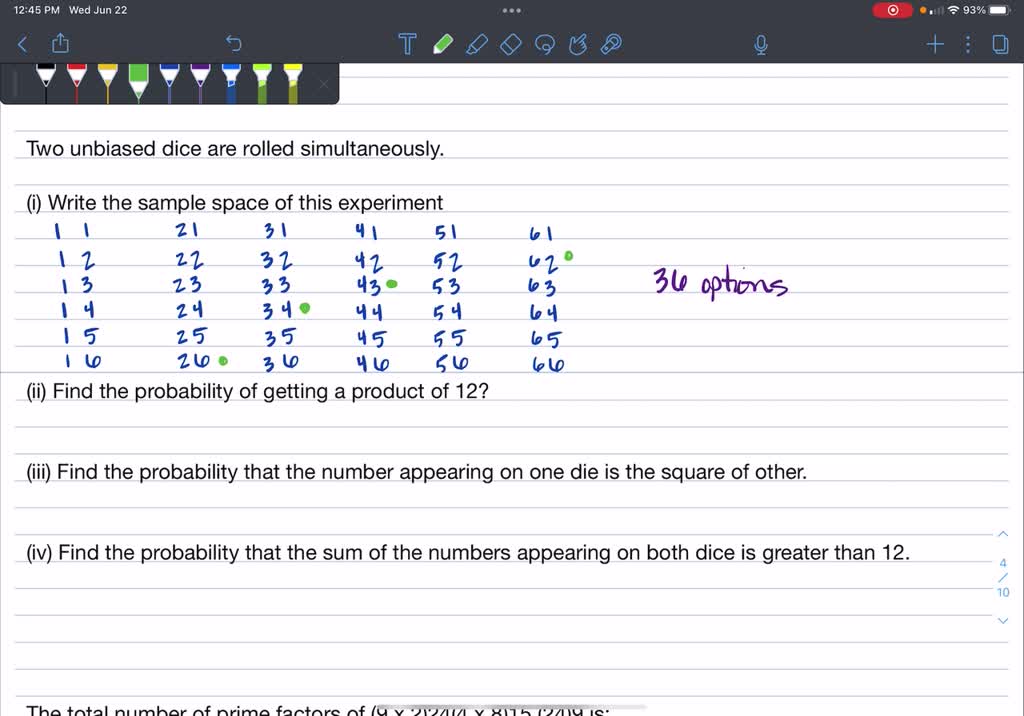 12:45 PM Wed Jun 22
93%
Two unbiased dice are rolled simultaneously.
(i) Write the sample space of this experiment
1 1 21 31 41 51 61
1 2 22 32 42 52 62
1 3 23 33 43 53 63
36 options
1 4 24 34 44 54 64
1 5 25 35 45 55 65
1 6 26 36 46 56 66
(ii) Find the probability of getting a product of 12?
(iii) Find the probability that the number appearing on one die is the square of other.
(iv) Find the probability that the sum of the numbers appearing on both dice is greater than 12.
4
/
10
The total number of prime factors of (9 x 2)24(4 x 8)15 (24)9 is: